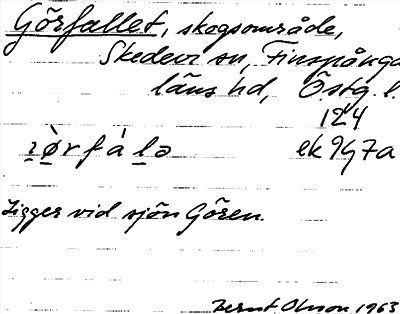 Görfallet, skogsområde,
Skedevi sn, Finspånga
läns hd, Östg. l.
124
ı̣ø̀rfálə ek 9G7a
Ligger vid sjön Gören.
Bernt Olsson 1963